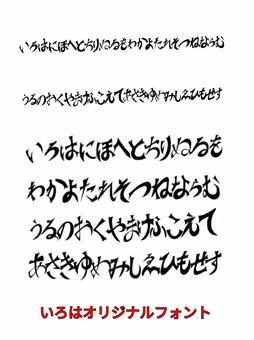 いろはにほへとちりぬるをわかよたれそつねならむ
うゐのおくやまけふこえてあさきゆめみしゑひもせす
いろはにほへとちりぬるを
わかよたれそつねならむ
うゐのおくやまけふこえて
あさきゆめみしゑひもせす
いろはオリジナルフォント